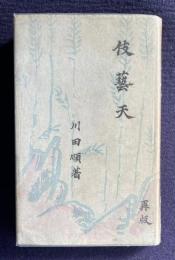 伎藝天
川田順著
再版